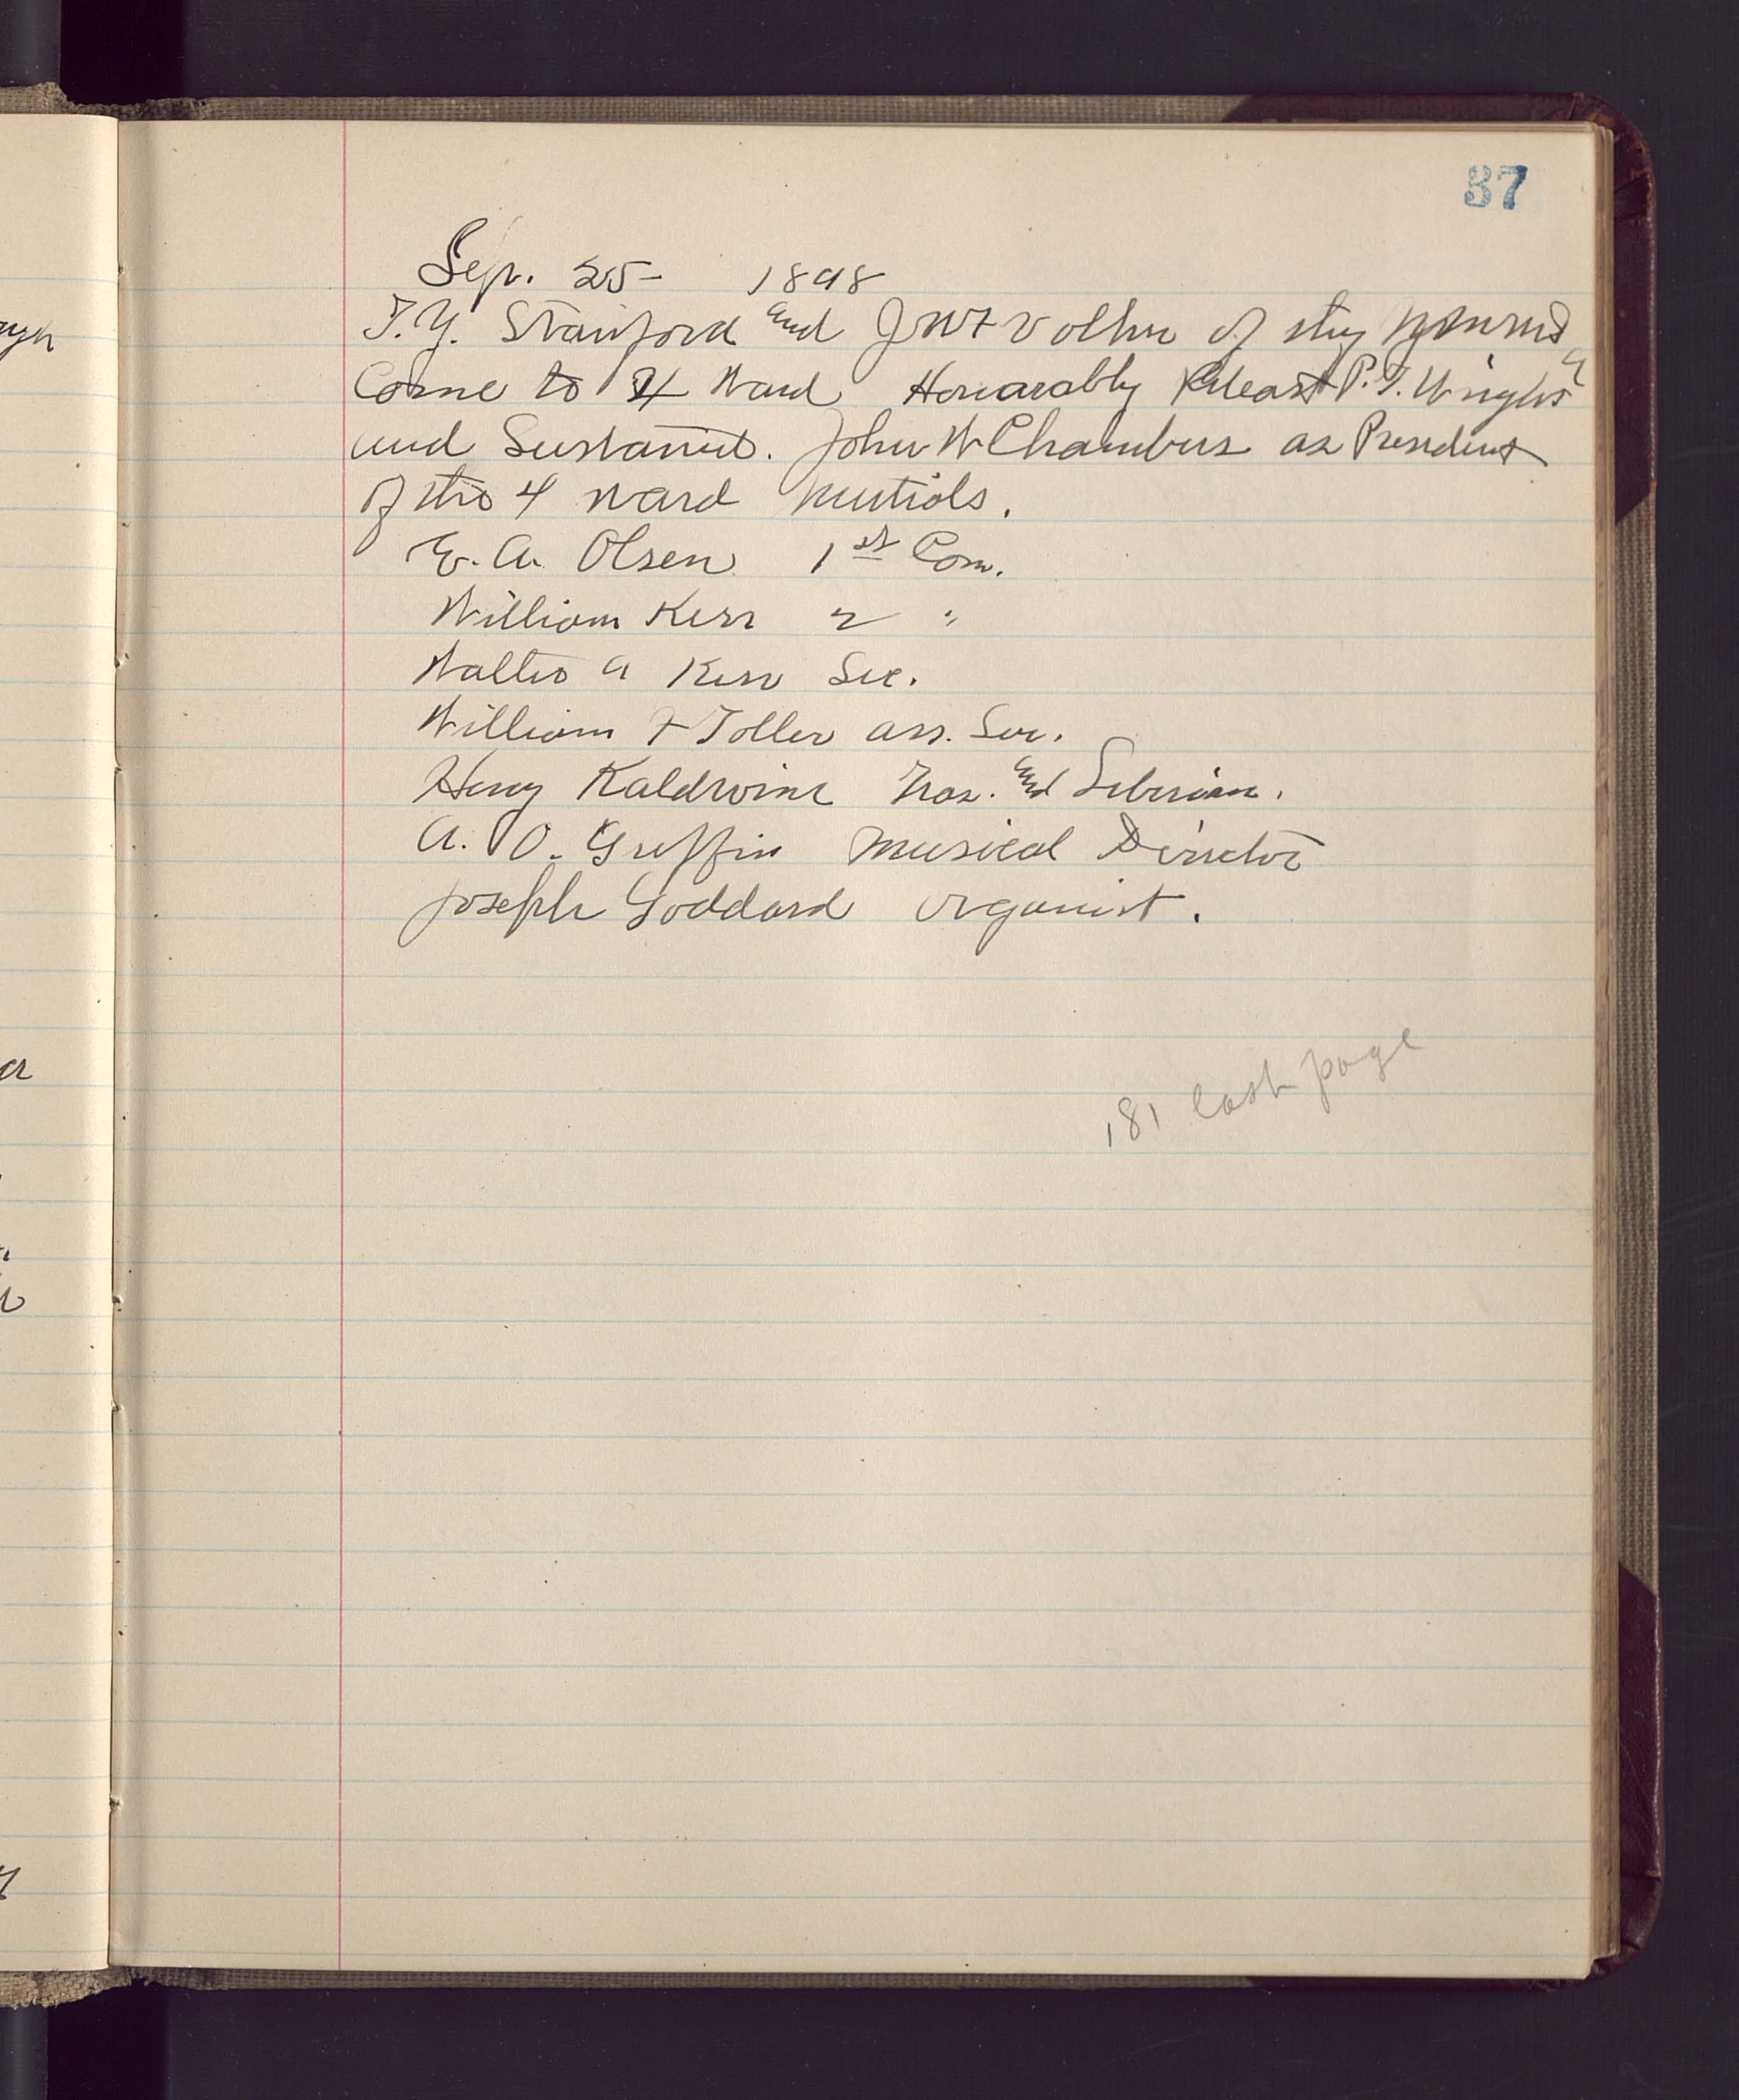 37
Sep. 25 - 1898
T.Y. Stanford and J W F Volker of sty
Come to 4 Ward Honarably Releast P.T. Wright
and Sustained. John W Chambers as President
of the 4 ward Mutials.
E. A. Olsen 1st Con.
William Kerr 2 "
Walter A Kerr Sec.
William F Toller ass. Sec.
Heny Raldwine Tras. and Liberian.
A. O. Griffin Musical Director
Joseph Goddard organist.
181 last page